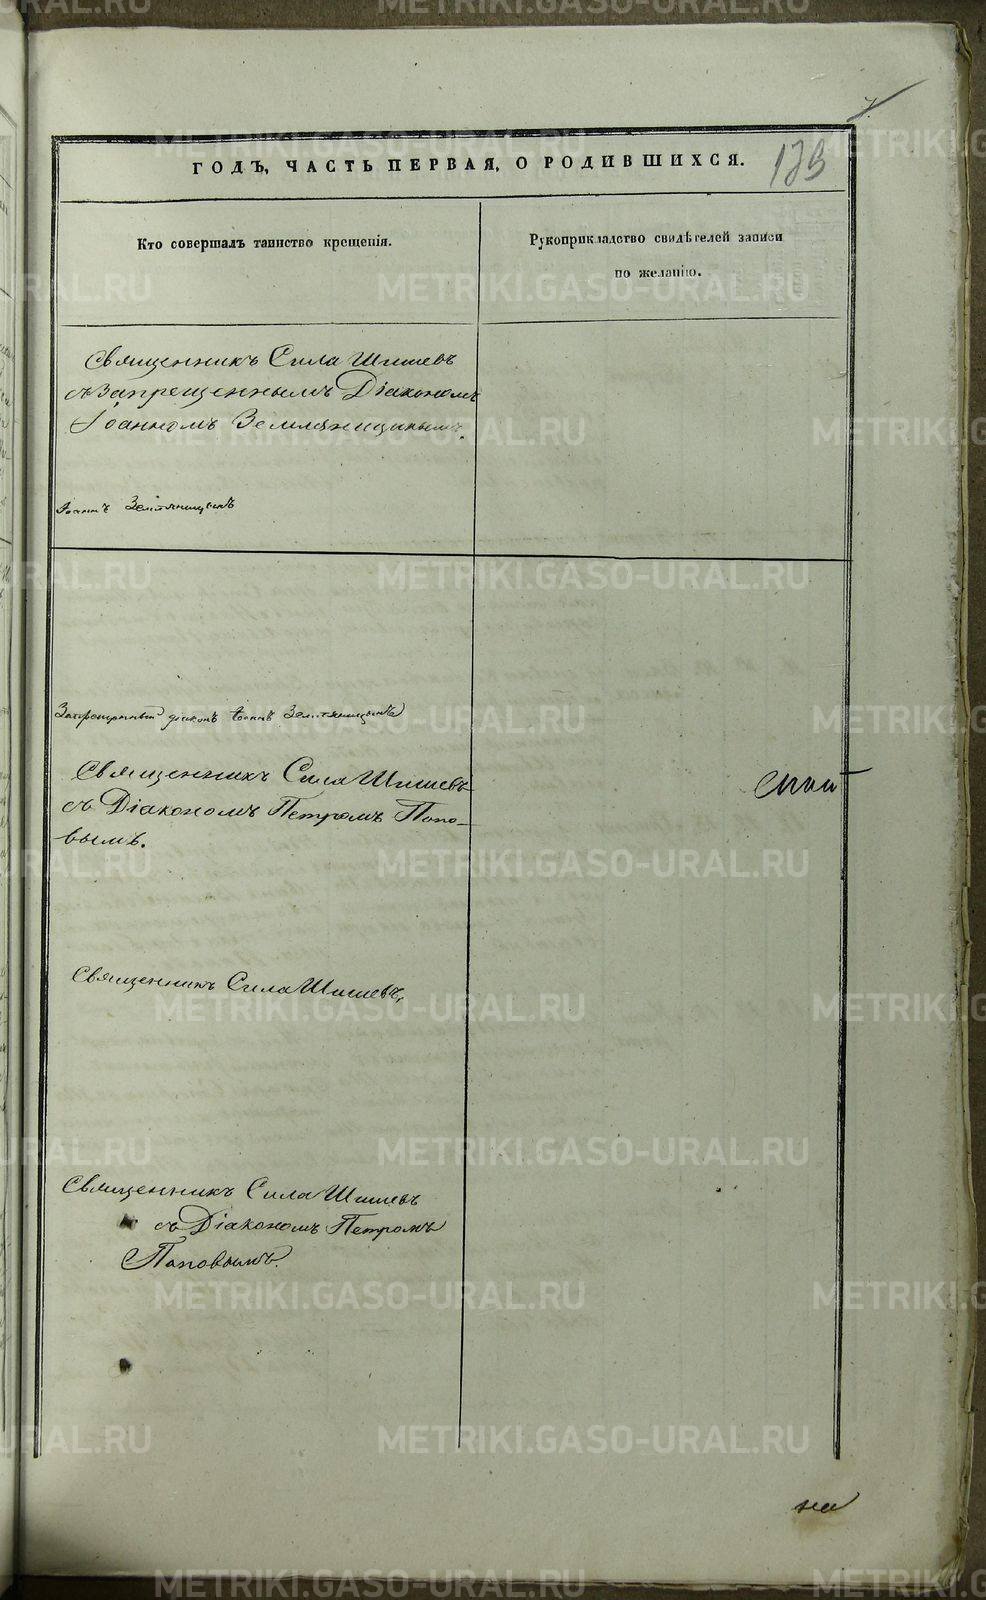 7.
ГОДЪ, ЧАСТЬ ПЕРВАЯ, О РОДИВШИХСЯ.
Кто совершалъ таинство крещенія.
Рукоприкладство свидѣтелей записи
по желанію.
Священникъ Сила Шишевъ
съ Запрещеннымъ Діакономъ
Іоанномъ Земляницынымъ.
Іоаннъ Земляницынъ
Запрещенный діаконъ Іоаннъ Земляницынъ
Священникъ Сила Шишевъ
съ Діакономъ Петромъ Попо-
вымъ.
Священникъ Сила Шишевъ,
Священникъ Сила Шишевъ
съ Діакономъ Петромъ
Поповымъ.
на
METRIKI.GASO-URAL.RU